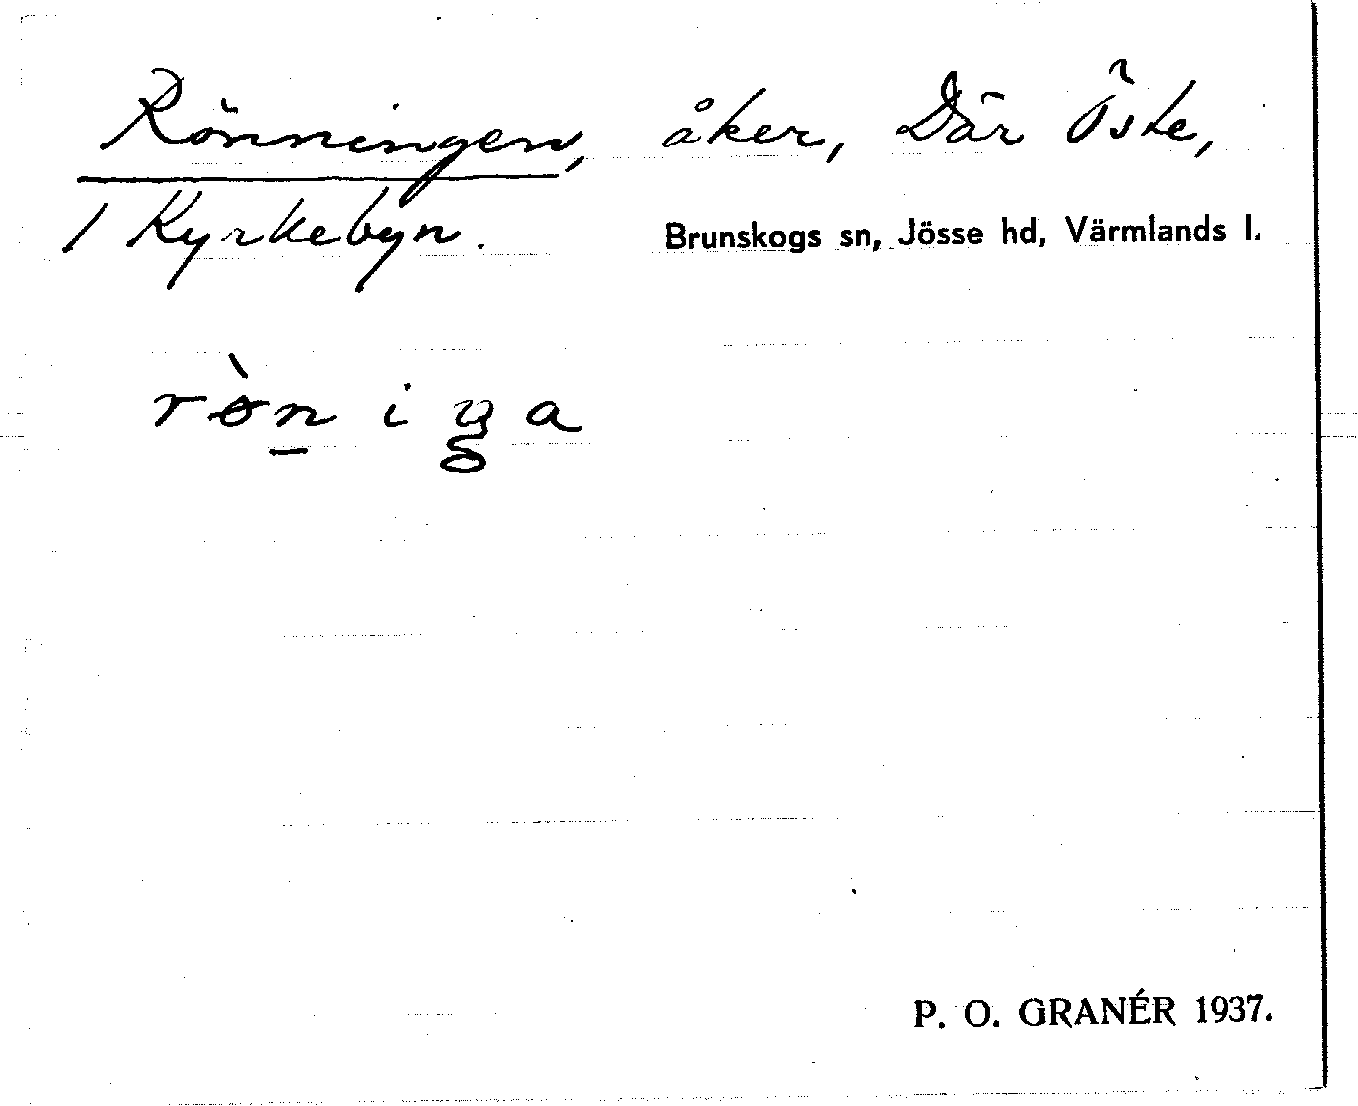 Rönningen, åker, Där Öste,
1 Kyrkebyn. Brunskogs sn, Jösse hd, Värmlands l.
rø̀n̠iŋa
P. O. GRANÉR 1937.